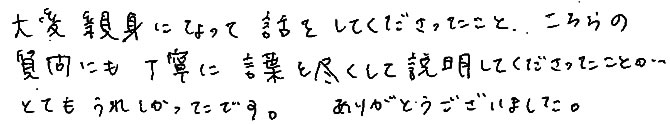 大変親身になって話をしてくださったこと、こちらの
質問にも丁寧に言葉を尽くして説明してくださったことが…
とてもうれしかったです。 ありがとうございました。